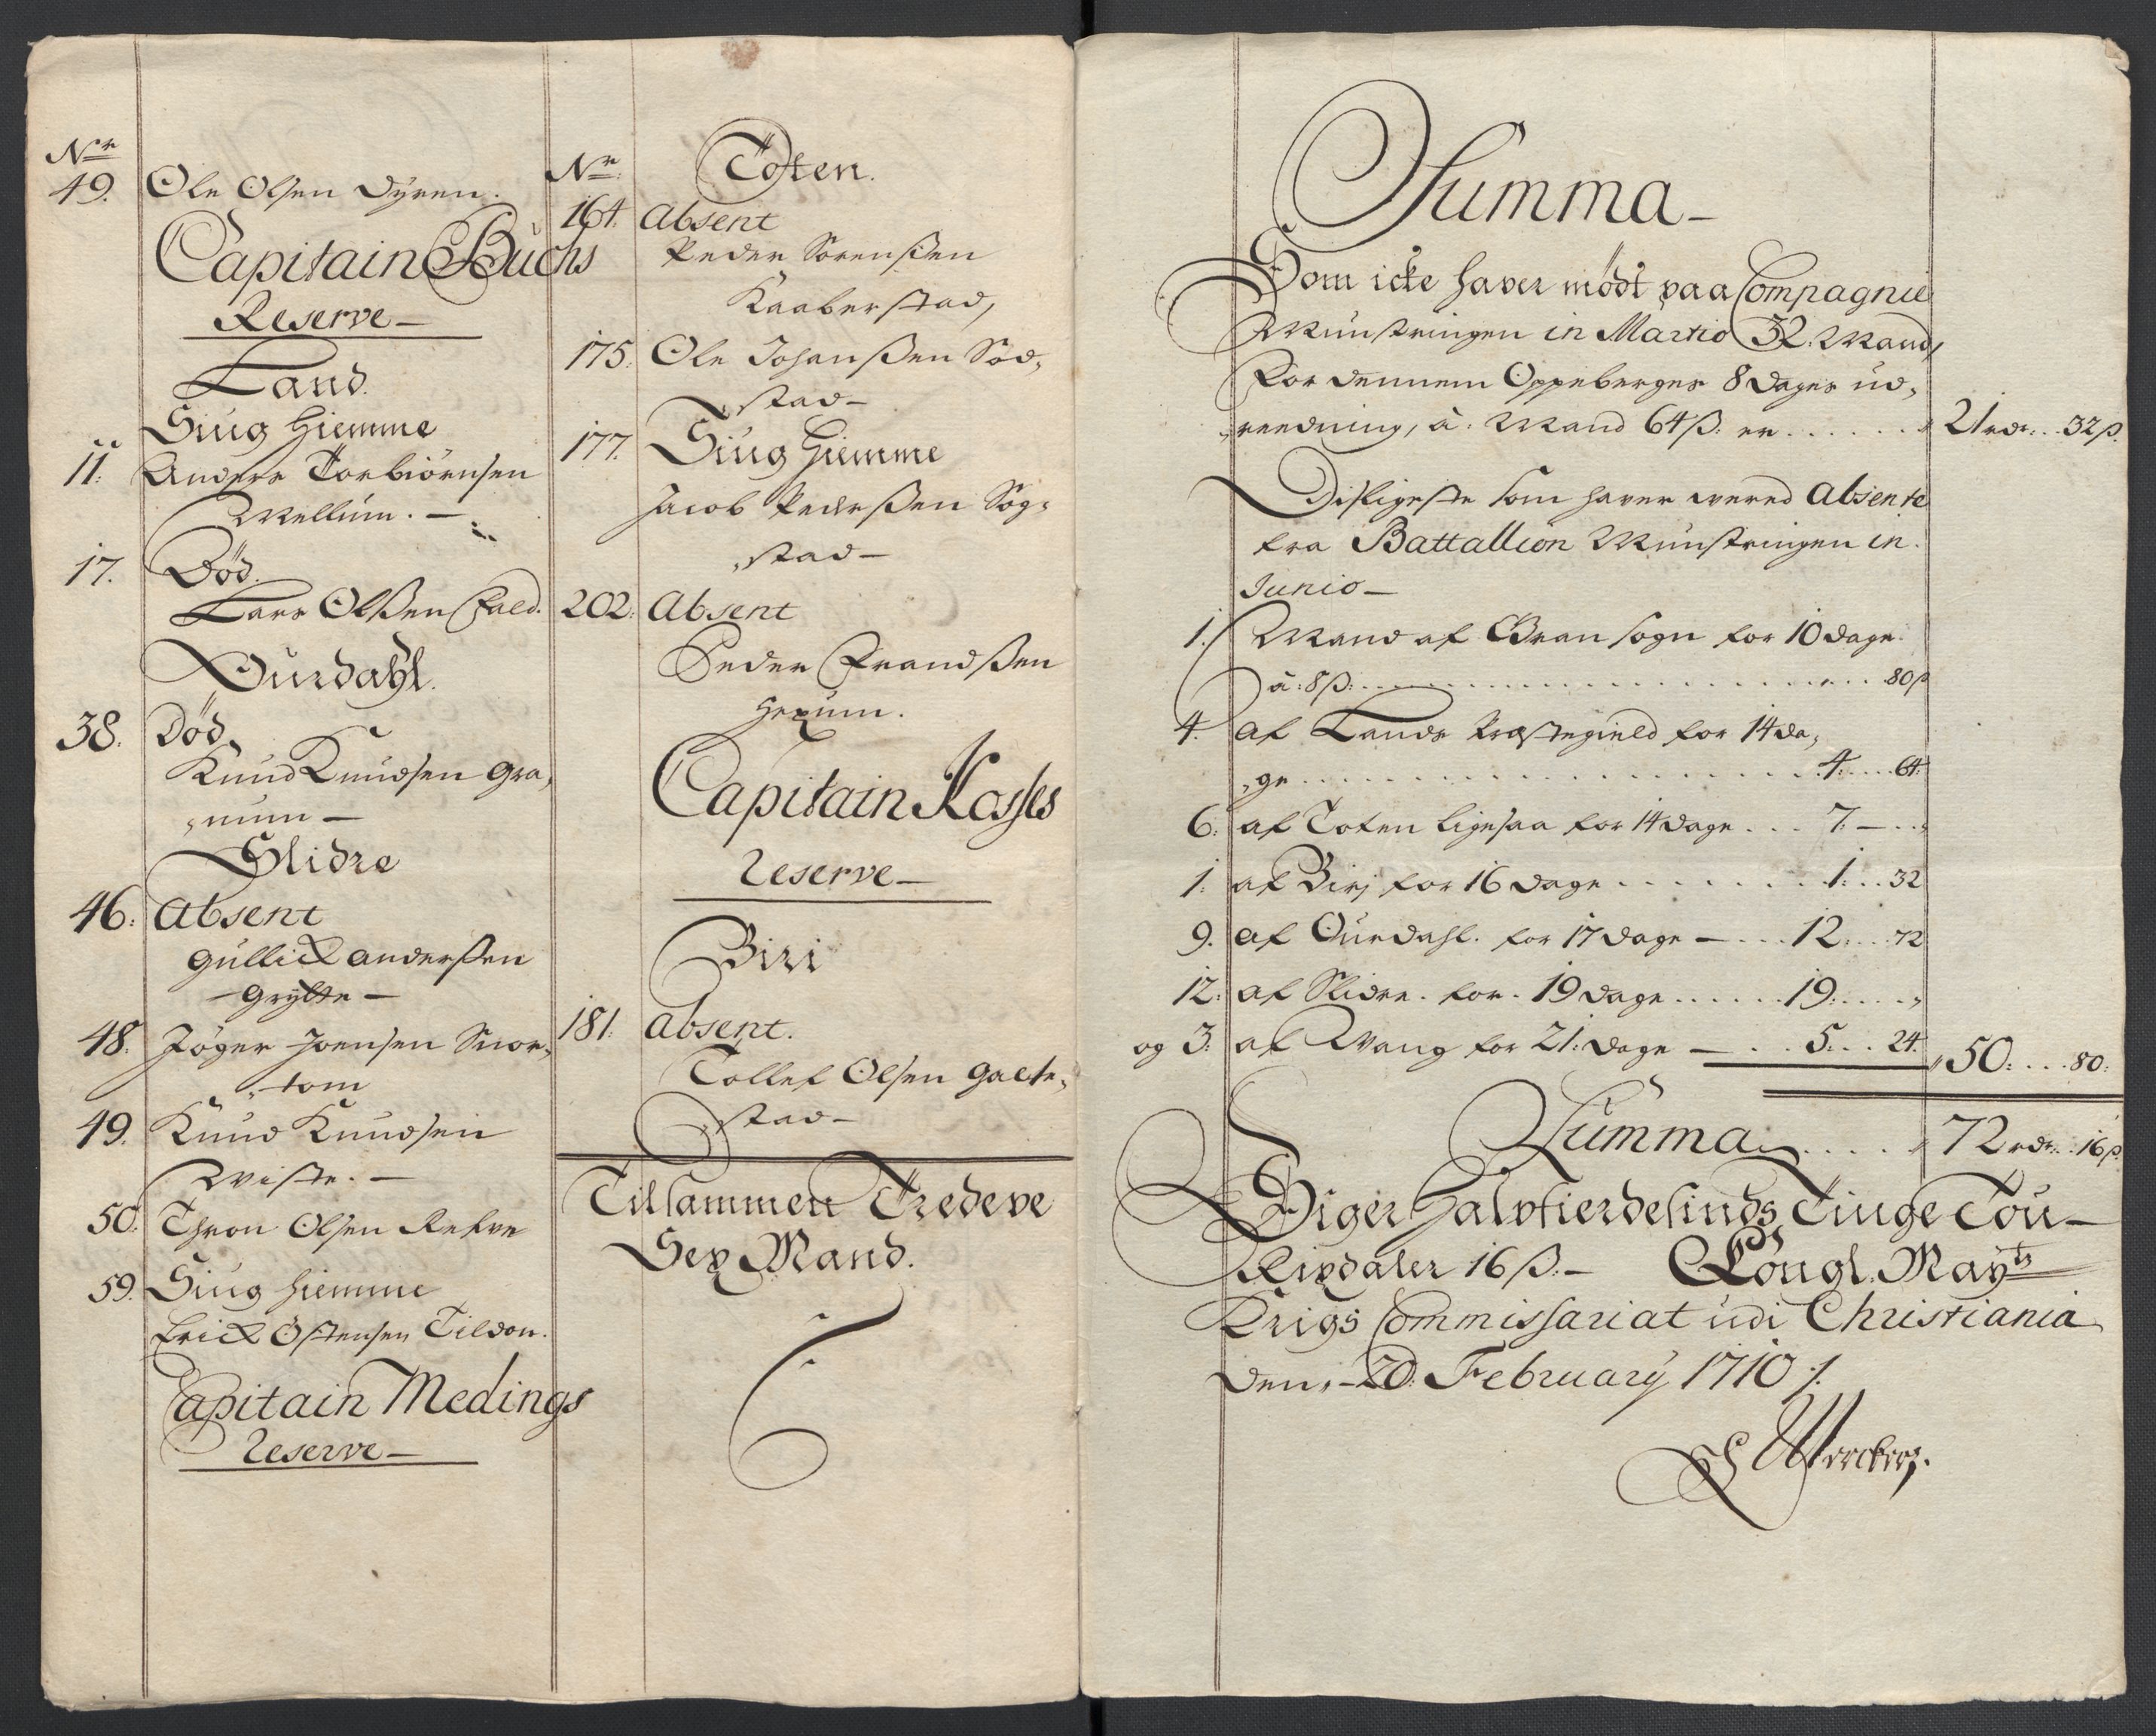 Nr
49. Ole Olsen Dyren.
Capitain Buchs
Reserve—
Land.
Siug Hiemme
11: Anders Torbiörnsen
Mellum.—
17. Död.
Lars Olßen Fald.
Ourdahl.
38. Död
Knud Knudsen Gra,
,num—
Slidre
46: Absent
Gullick anderßen
—Grytte—
48. Jöger Joensen
,tom
49. Knud Knudsen
Wiste.—
50. Thron Olsen Rekve
59. Siug hiemme
Erick Östensen Tildon.
Capitain Medings
Reserve—
Nr. Toten.
164. Absent
Peder Sörenßen
Kaaberstad,
175. Ole Johanßen Söd,
,stad—
177. Siug hiemme
Jacob Pederßen Sog,
,stad—
202. Absent
Peder Frandßen
Hexum.
Capitain Kosses
Reserve—
Biri
181. absent.
Tollef Olsen Galte,
,stad—
Tilsammen Tredeve
Sex Mand.
Summa—
Som icke haver mödt paa Compagnie
Munstringen in Martio 32. Mand,
for dennem Oppeberges 8 dages ud,
,reedning, à. Mand 64 ß. er ...... 21 rdr. .. 32 ß.
Disligeste som haver wered Absente
fra Battallion Munstringen in
Junio—
1. Mand af Gran sogn for 10 dage
à: 8 ß: ...... 80 ß
4. af Lands Præstegield for 14 da,
,ge ...... 4: .... 64:
6: af Toten ligesaa for 14 dage ... 7. — ..
1: af Birj for 16 dage ...... 1: .. 32
9. af Ourdahl. for 17 dage — ... 12: .. 72
12: af Slidre. for. 19 dage ...... 19: ....
og 3: af Wang for 21: dage — .. 5: .. 24. 50: ... 80:
Summa .... 72 rdr: .. 16 ß.
Siger Halvfierdesinds Tiuge Tou—
Rixdaler 16 ß.— Kongl. Mayts
Krigs Commissariat udi Christiania
den,—20. February 1710 ./.